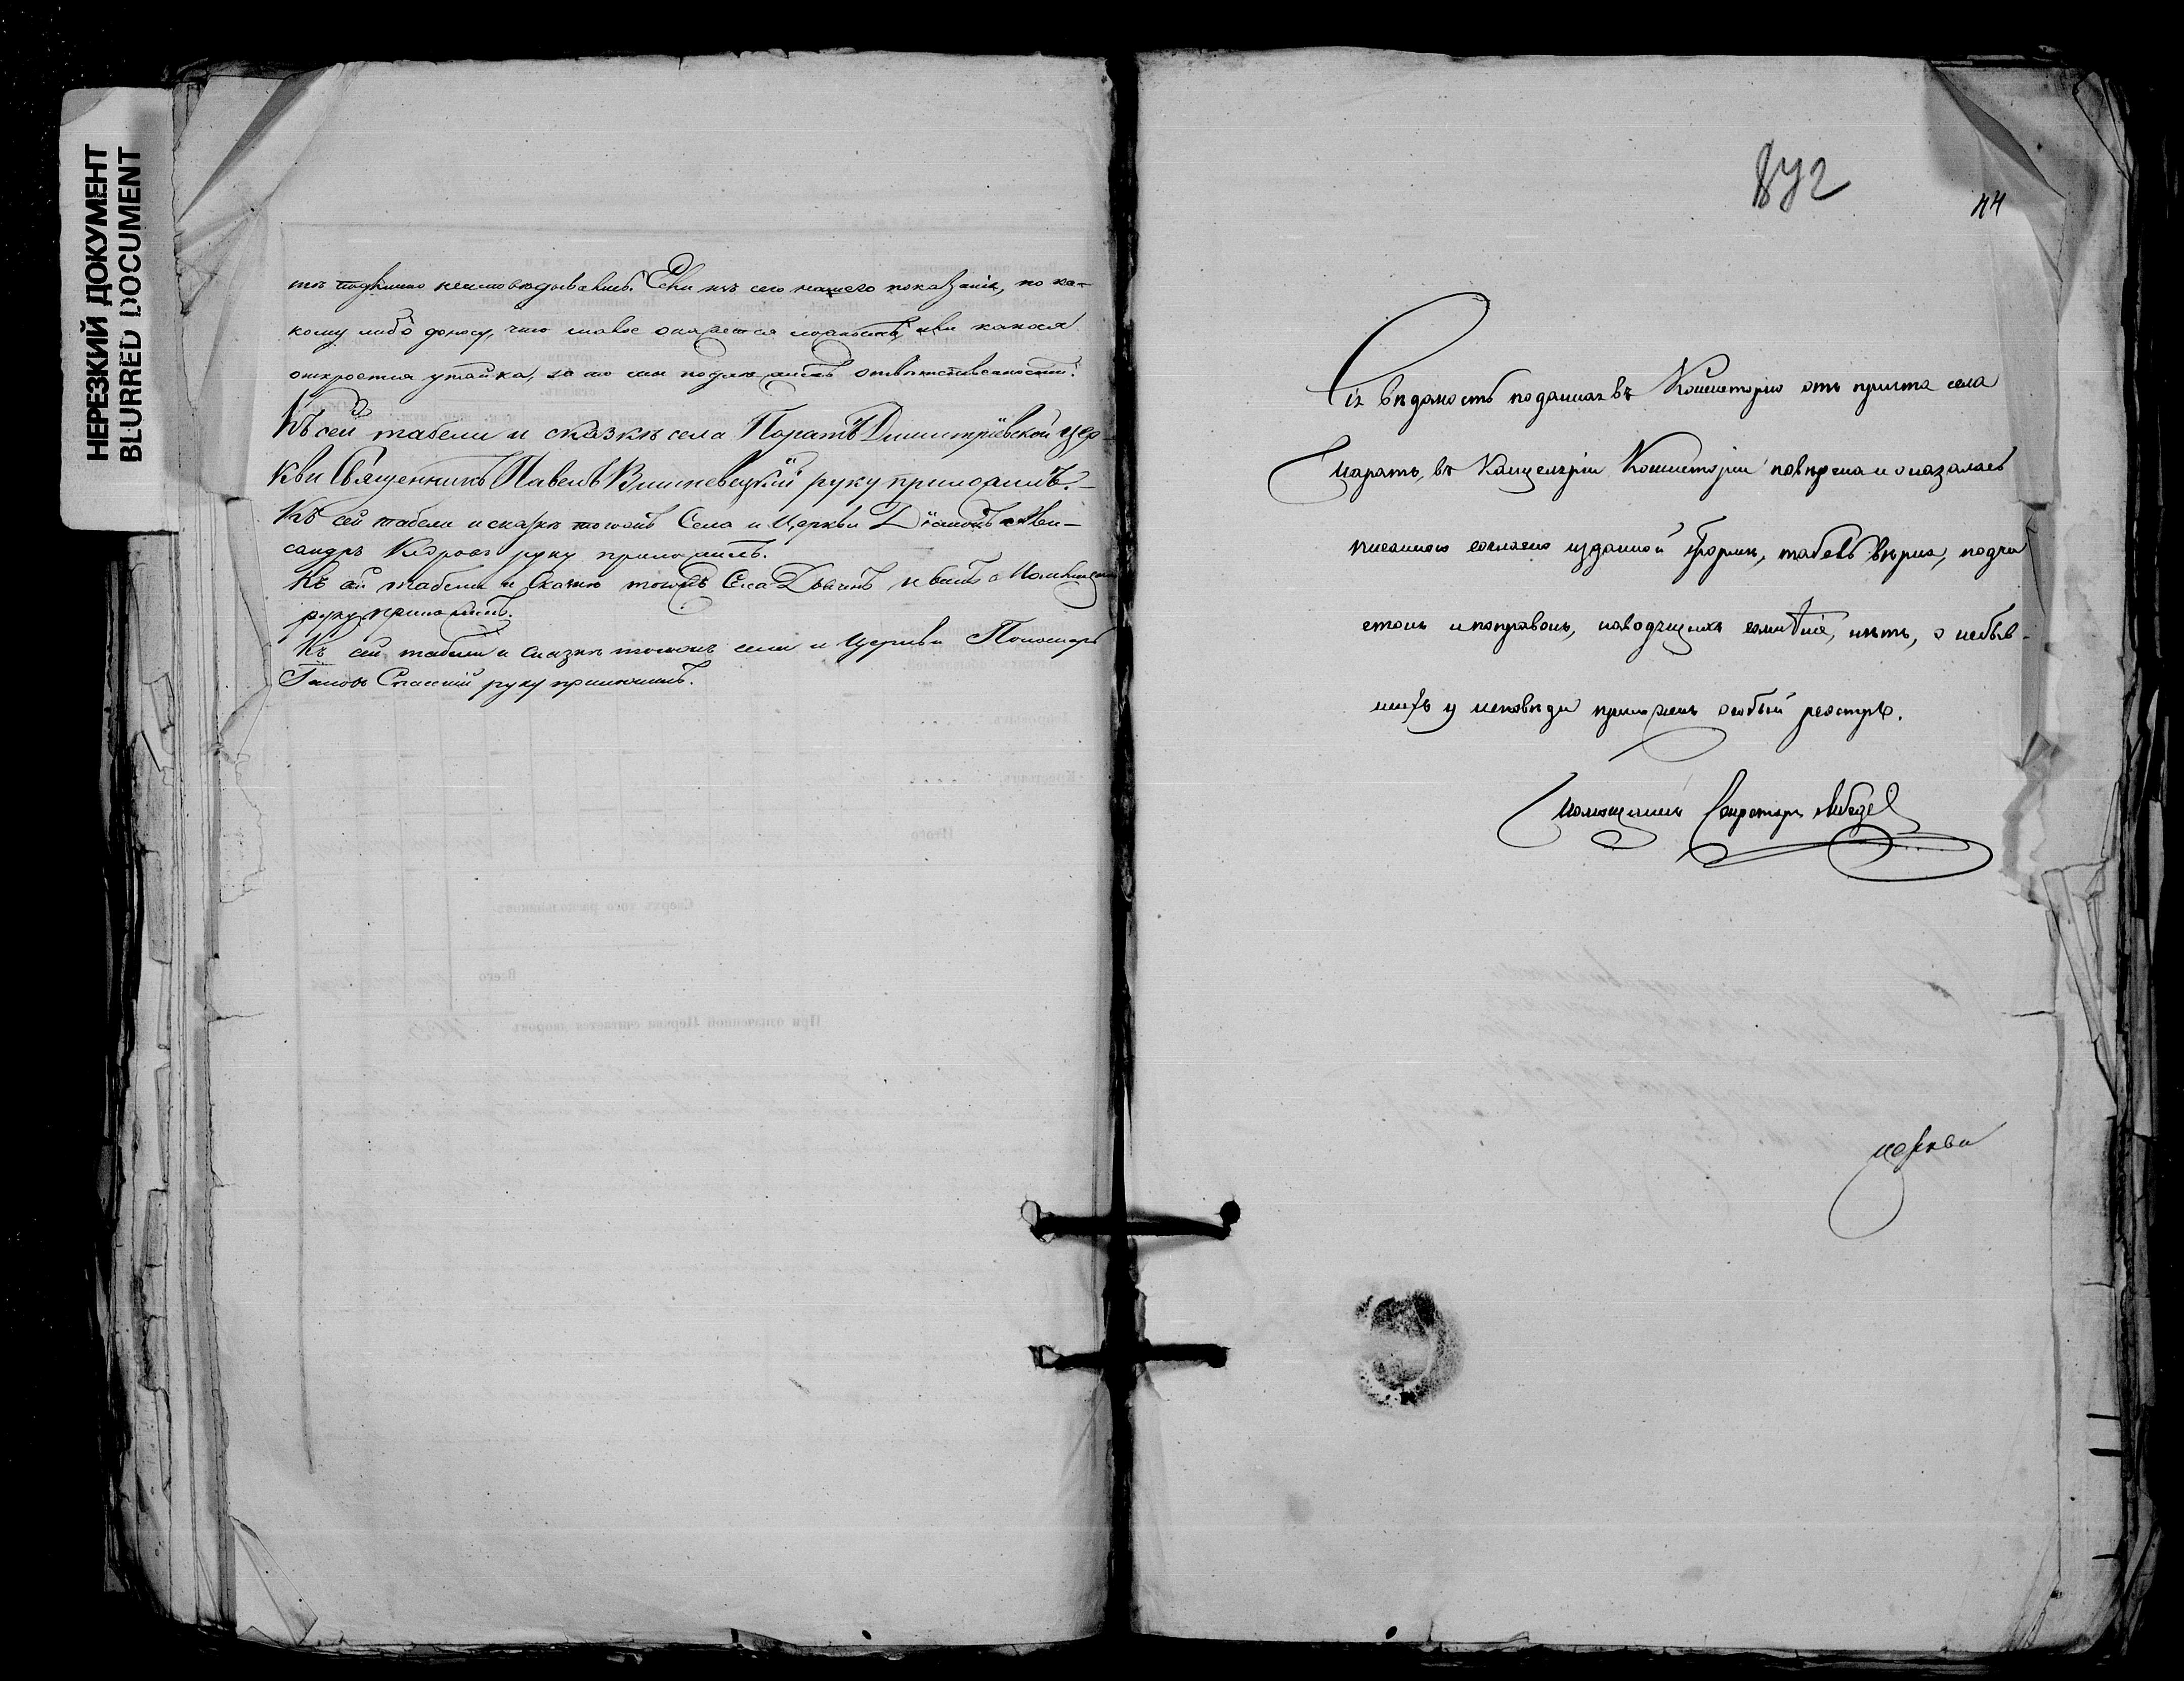 НЕРЕЗКИЙ ДОКУМЕНТ
BLURRED DOCUMENT
тѣ подлинно неисповѣдывались. Если изъ сего нашего показанія, по ка-
кому либо доносу, что инаво окажется ложность, или какая
откроется утайка, за то мы подлежимъ отвѣтственности.
Къ сей табели и сказкѣ села Паратъ Димитріевской цер-
кви Священникъ Павелъ Вишневскій руку приложилъ.
Къ сей табели и сказкѣ тогожъ Села и Церкви Діаконъ Алек-
сандръ Кедровъ руку приложилъ.
Къ сей табели и сказкѣ тогожъ Села Дьячекъ
руку приложилъ.
Къ сей табели и сказкѣ тогожъ села и Церкви Пономарь
Спасскій руку приложилъ.
872
44
Сія вѣдомость поданная въ Консисторію отъ причта села
Паратъ, въ Канцеляріи Консисторіи повѣрена и оказалась
писанною согласно изданной формѣ, табель вѣрна, подчи
стокъ и поправокъ, наводящихъ сомнѣніе, нѣтъ, о небыв-
шихъ у исповѣди приложенъ особый реестръ.
Помощникъ Секретаря Лебедев
церкви
Крестьянъ
Итого
Сверхъ того раскольниковъ
Всего
При означенной Церкви считается дворовъ